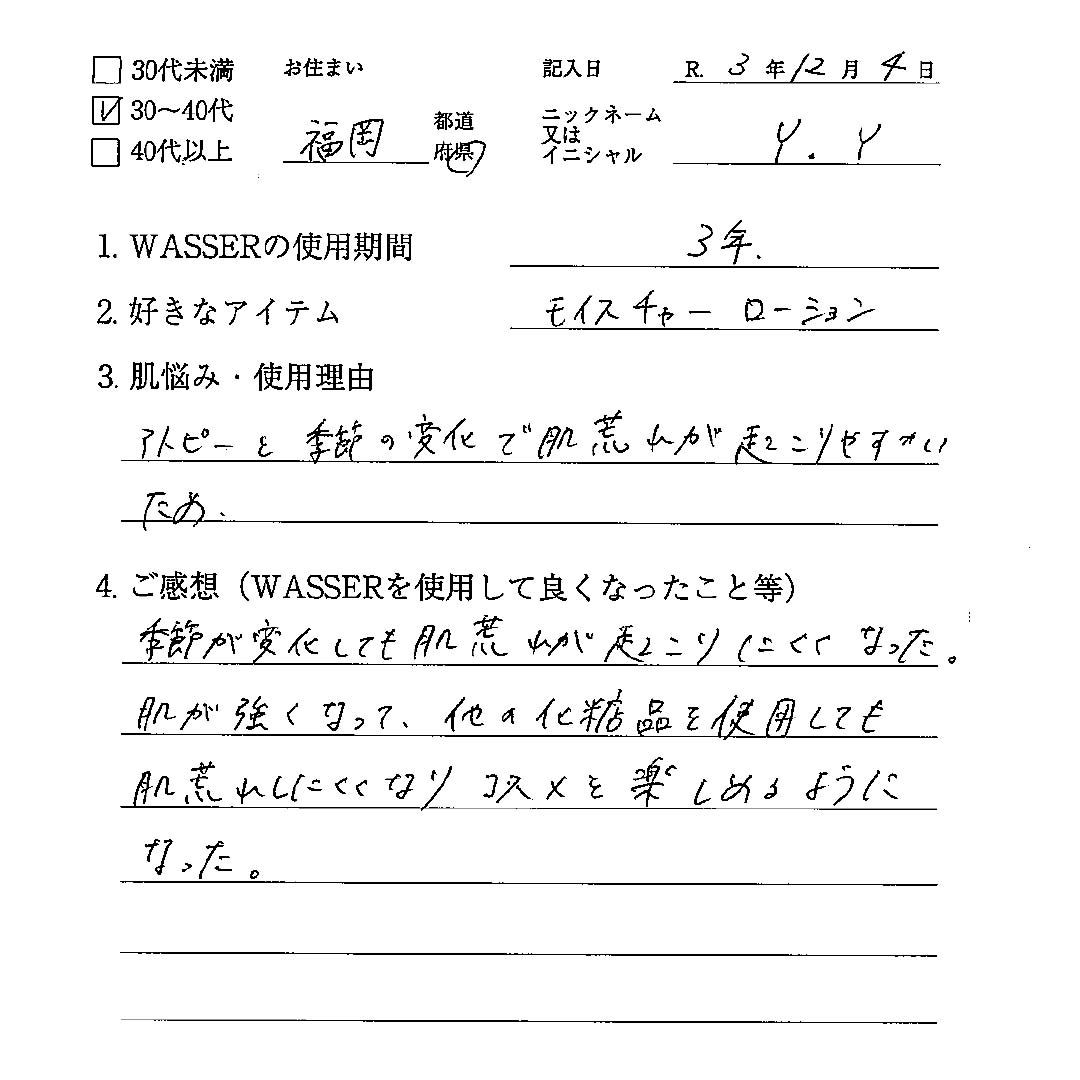 30代未満 お住まい 記入日 R. 3年12月4日
30〜40代 福岡 都道府県 ニックネーム又はイニシャル Y.Y
40代以上
1. WASSERの使用期間 3年.
2. 好きなアイテム モイスチャーローション
3. 肌悩み・使用理由
アトピーと季節の変化で肌荒れが起こりやすい
ため.
4. ご感想（WASSERを使用して良くなったこと等）
季節が変化しても肌荒れが起こりにくくなった。
肌が強くなって、他の化粧品を使用しても
肌荒れしにくくなりコスメを楽しめるように
なった。